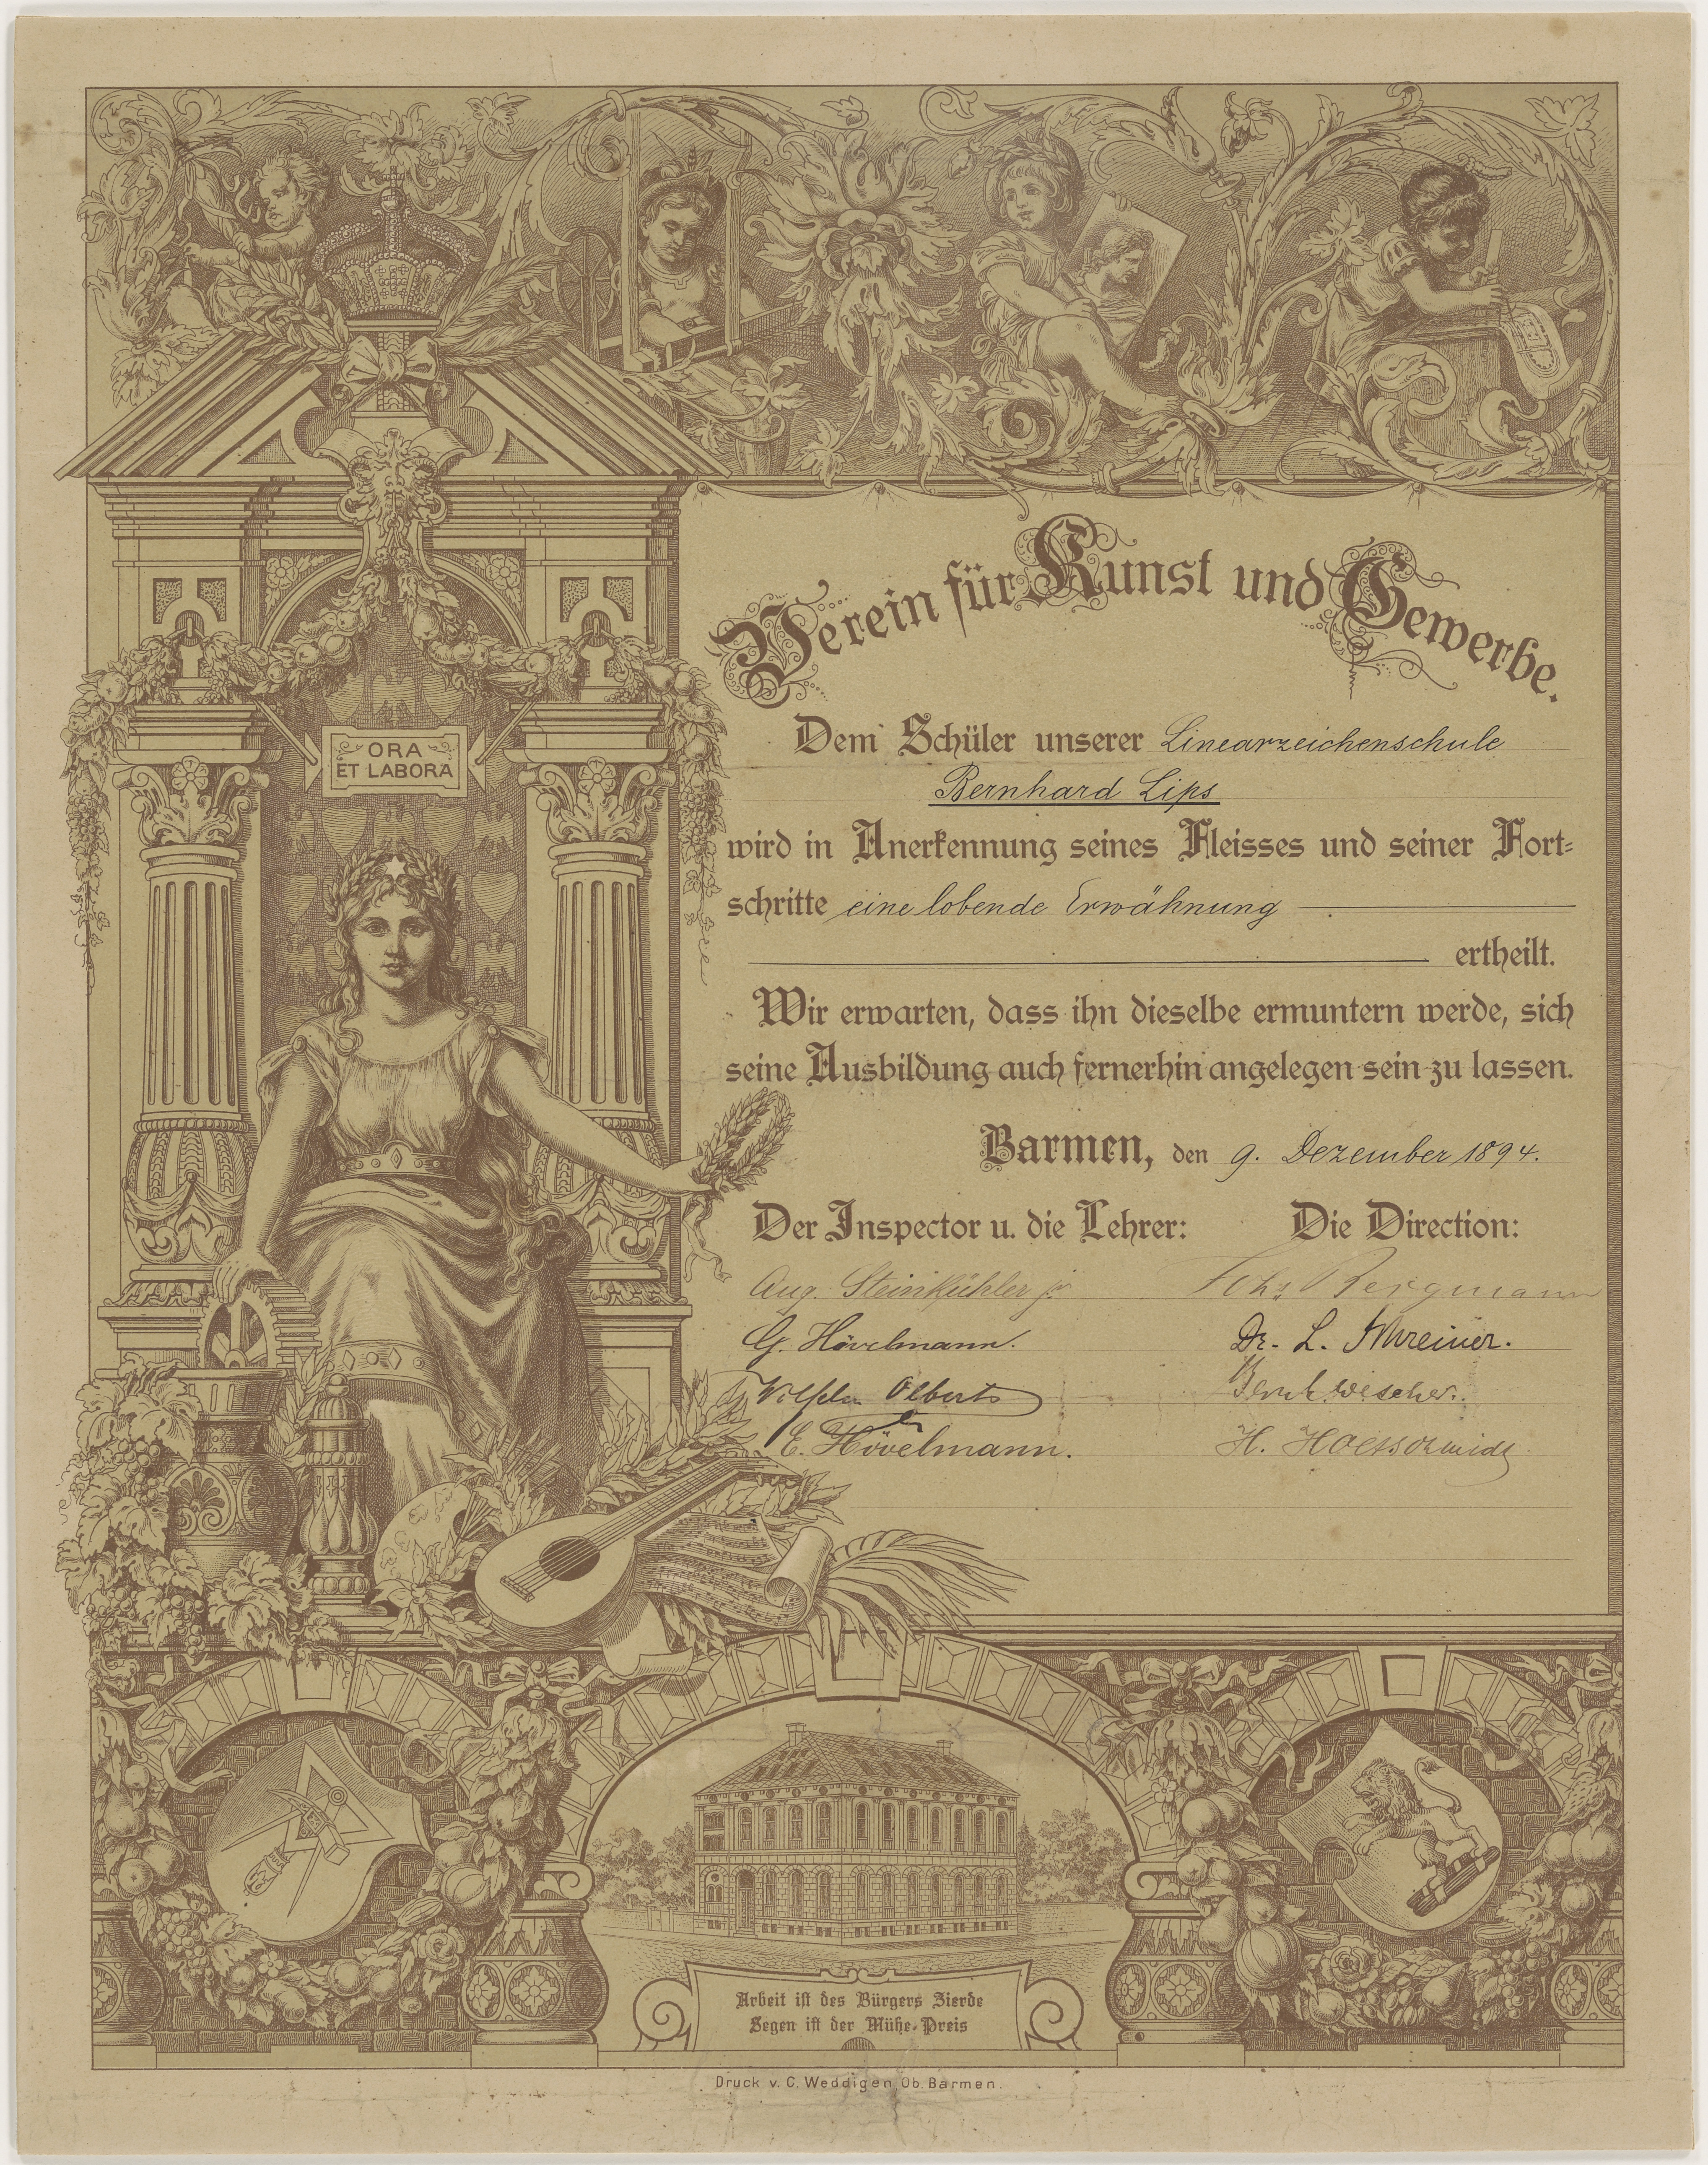 Verein für Kunst und Gewerbe.
ORA
ET LABORA
Dem Schüler unserer Linearzeichenschule
Bernhard Lips
wird in Anerkennung seines Fleisses und seiner Fort-
schritte eine lobende Erwähnung
ertheilt.
Wir erwarten, dass ihn dieselbe ermuntern werde, sich
seine Ausbildung auch fernerhin angelegen sein zu lassen.
Barmen, den 9. Dezember 1894.
Der Inspector u. die Lehrer:
Aug. Steinkühler jr
G. Hövelmann.
Olberts
E. Hövelmann.
Die Direction:
Bergmann
Dr. L. Schreiner.
H.
Arbeit ist des Bürgers Zierde
Segen ist der Mühe Preis
Druck v. C. Weddigen, Ob. Barmen.